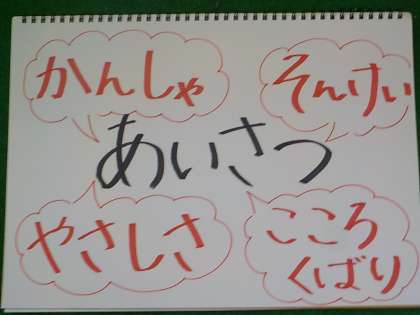 かんしゃ
そんけい
あいさつ
やさしさ
こころ
くばり